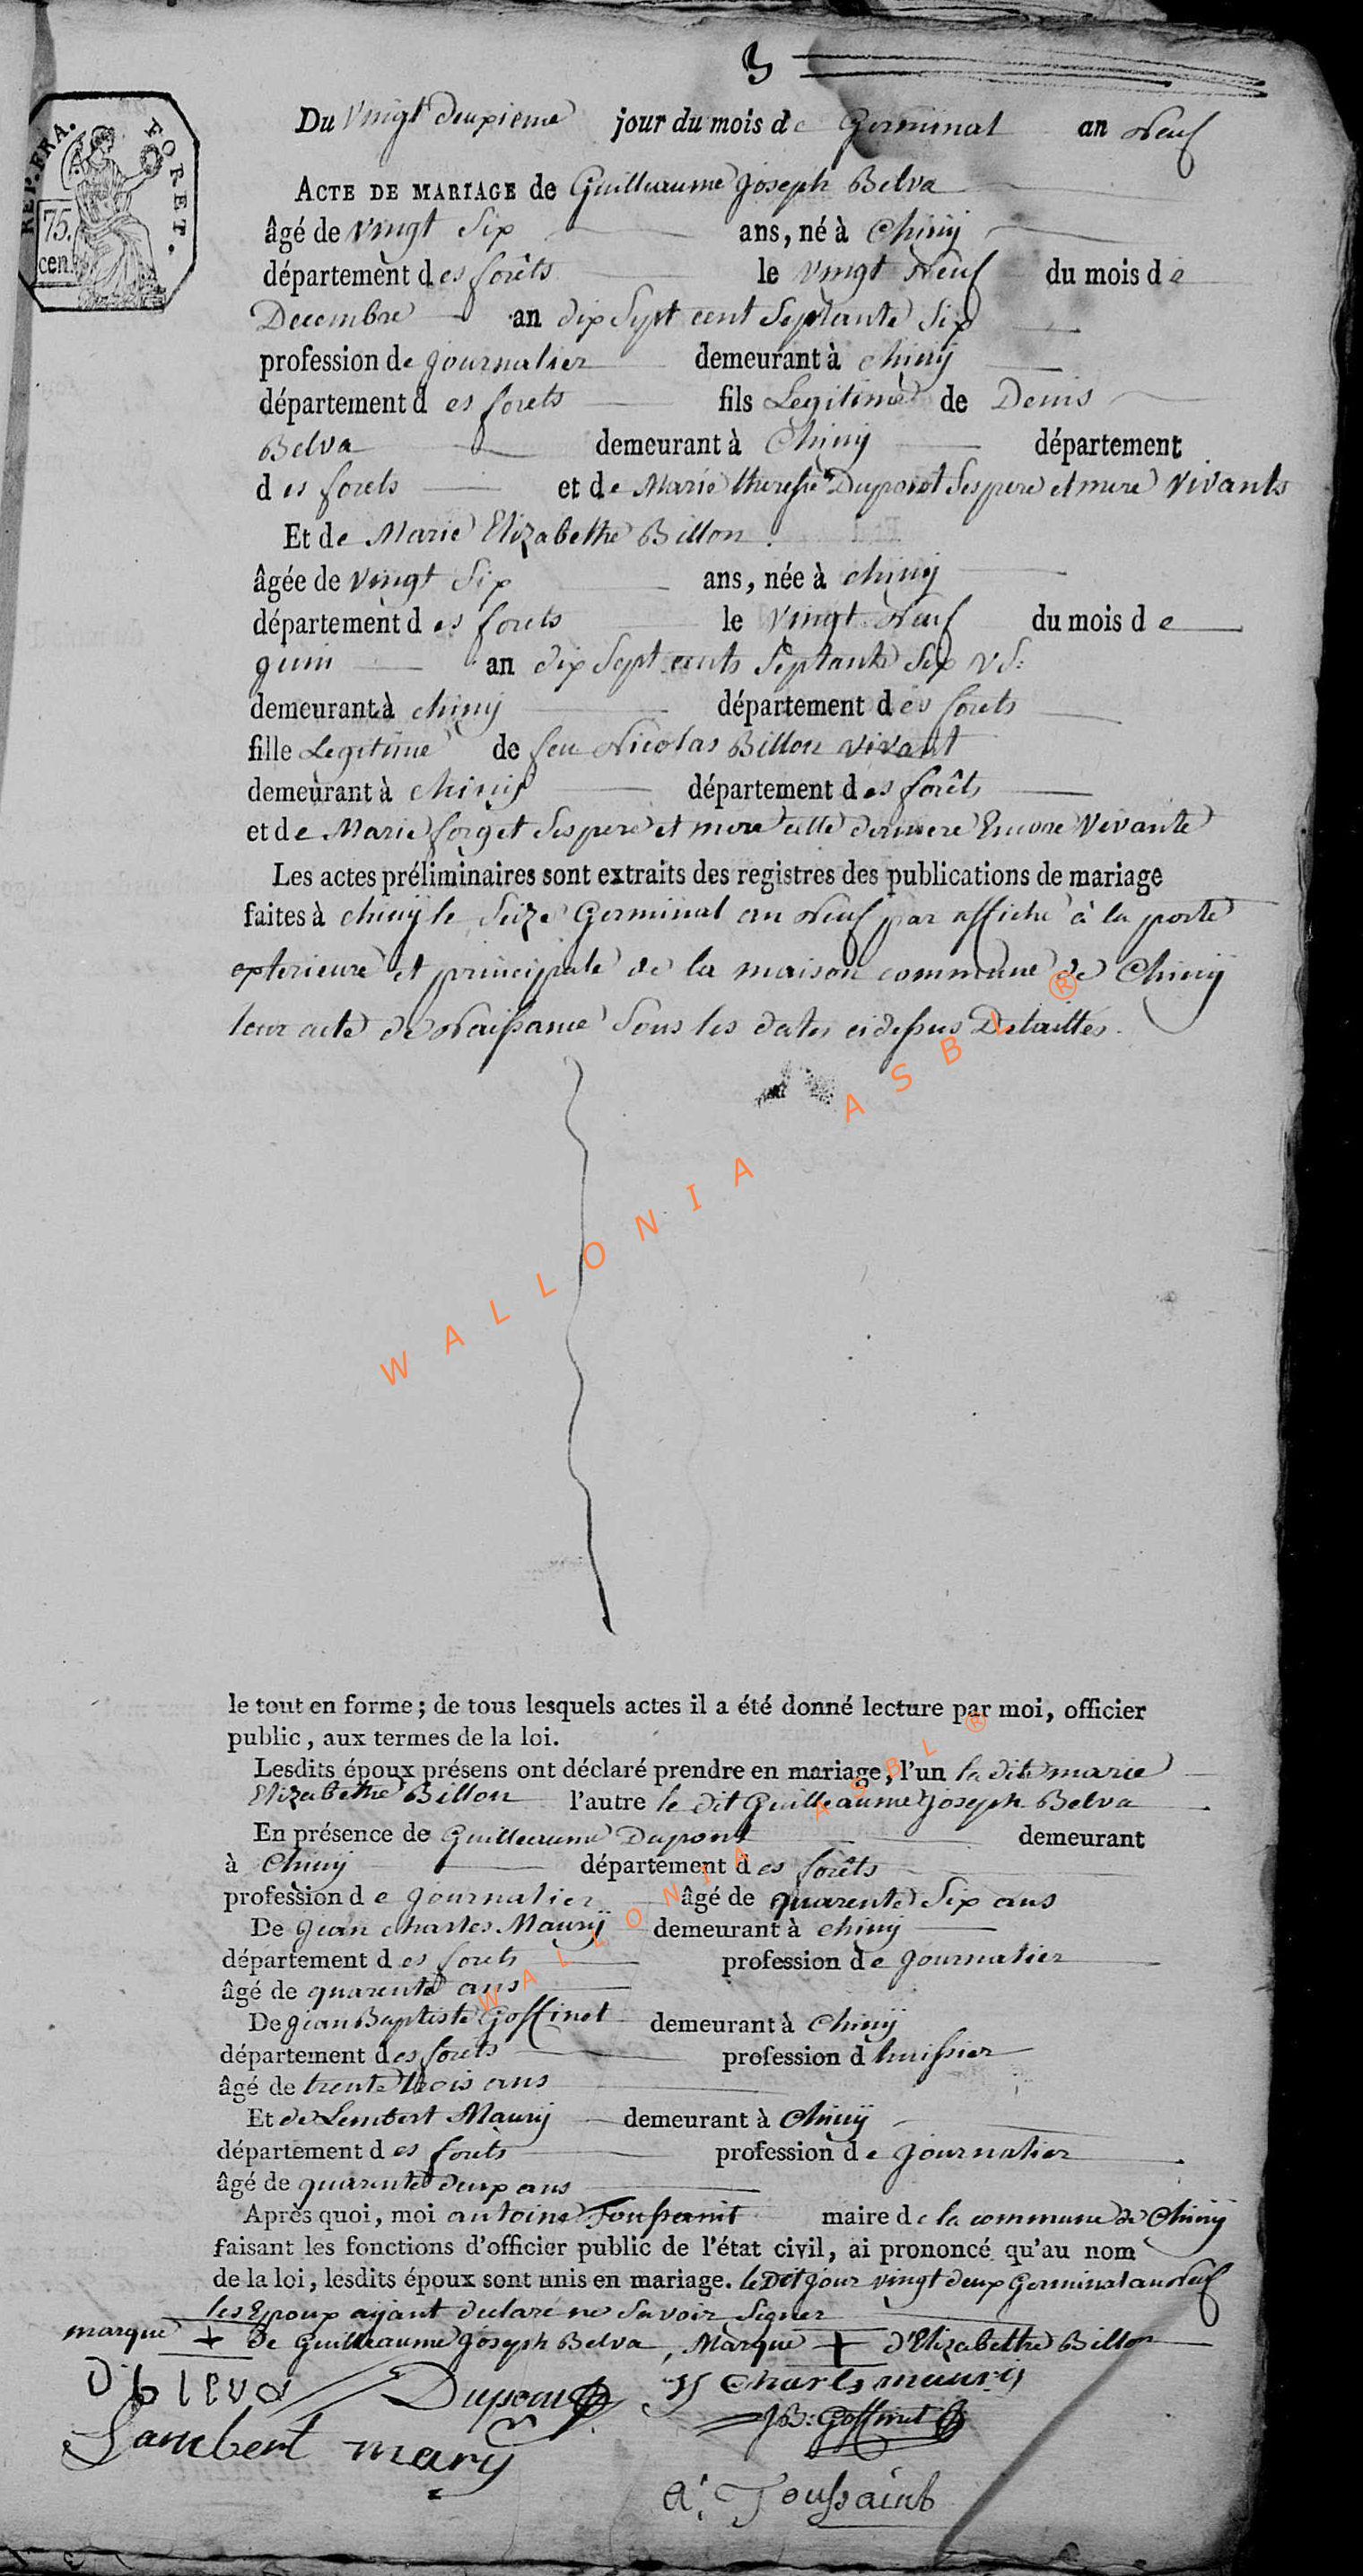 3
REP. FRA. FORET.
75.
cen.
Du Vingt deuxieme jour du mois de Germinal an Neuf
ACTE DE MARIAGE de Guilleaume Joseph Belva
âgé de Vingt Six ans, né à Chiny
département des forêts le Vingt Neuf du mois de
Decembre an dix Sept cent Septante Six
profession de journalier demeurant à chiny
département des forets fils Legitime de Denis
Belva demeurant à Chiny département
des forets et de Marie theresse Dupont Ses pere et mere Vivants
Et de Marie Elizabethe Billon.
âgée de Vingt Six ans, née à chiny
département des forets le Vingt Neuf du mois de
juin an dix Sept cents Septante Six VS:
demeurant à chiny département des forets
fille Legitime de feu Nicolas Billon vivant
demeurant à chiny département des forêts
et de Marie forget Ses pere et mere cette derniere Encore Vivante
Les actes préliminaires sont extraits des registres des publications de mariage
faites à chiny le Seize Germinal an Neuf par affiche à la porte
exterieure et principale de la maison commune de Chiny
leur acte de Naissance Sous les dates cidessus Detaillés.
WALLONIA ASBL ®
le tout en forme; de tous lesquels actes il a été donné lecture par moi, officier
public, aux termes de la loi.
Lesdits époux présens ont déclaré prendre en mariage, l'un la dite marie
Elizabethe Billon l'autre le dit Guilleaume Joseph Belva
En présence de Guilleaume Dupont demeurant
à Chiny département des forêts
profession de journalier âgé de quarente Six ans
De jean charles Maury demeurant à chiny
département des forets profession de journalier
âgé de quarente ans
De jean Baptiste Goffinet demeurant à Chiny
département des forets profession d huissier
âgé de trente trois ans
Et de Lembert Maury demeurant à Chiny
département des forêts profession de journalier
âgé de quarente deux ans
Après quoi, moi antoine Toussaint maire de la commune de Chiny
faisant les fonctions d'officier public de l'état civil, ai prononcé qu'au nom
de la loi, lesdits époux sont unis en mariage. le Dit jour vingt deux Germinal an Neuf
les Epoux ayant declaré ne Savoir Signer
marque + de Guilleaume Joseph Belva, Marque + d'Elizabethe Billon
WALLONIA ASBL ®
Dupont Charles maury
J B: Goffinet
Lambert mary
A: Toussaint